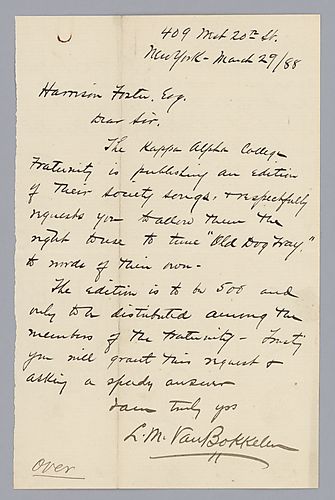 409 West 20th St.
New York - March 29/88
Harrison Foster, Esq.
Dear Sir,
The Kappa Alpha College
Fraternity is publishing an edition
of their society songs, & respectfully
requests you to allow them the
right to use to tune "Old Dog Tray,"
to words of their own -
The edition is to be 500 and
only to be distributed among the
members of the fraternity - Trusting
you will grant this request &
asking a speedy answer
I am truly yrs
L. M. Van Bokkelen
over